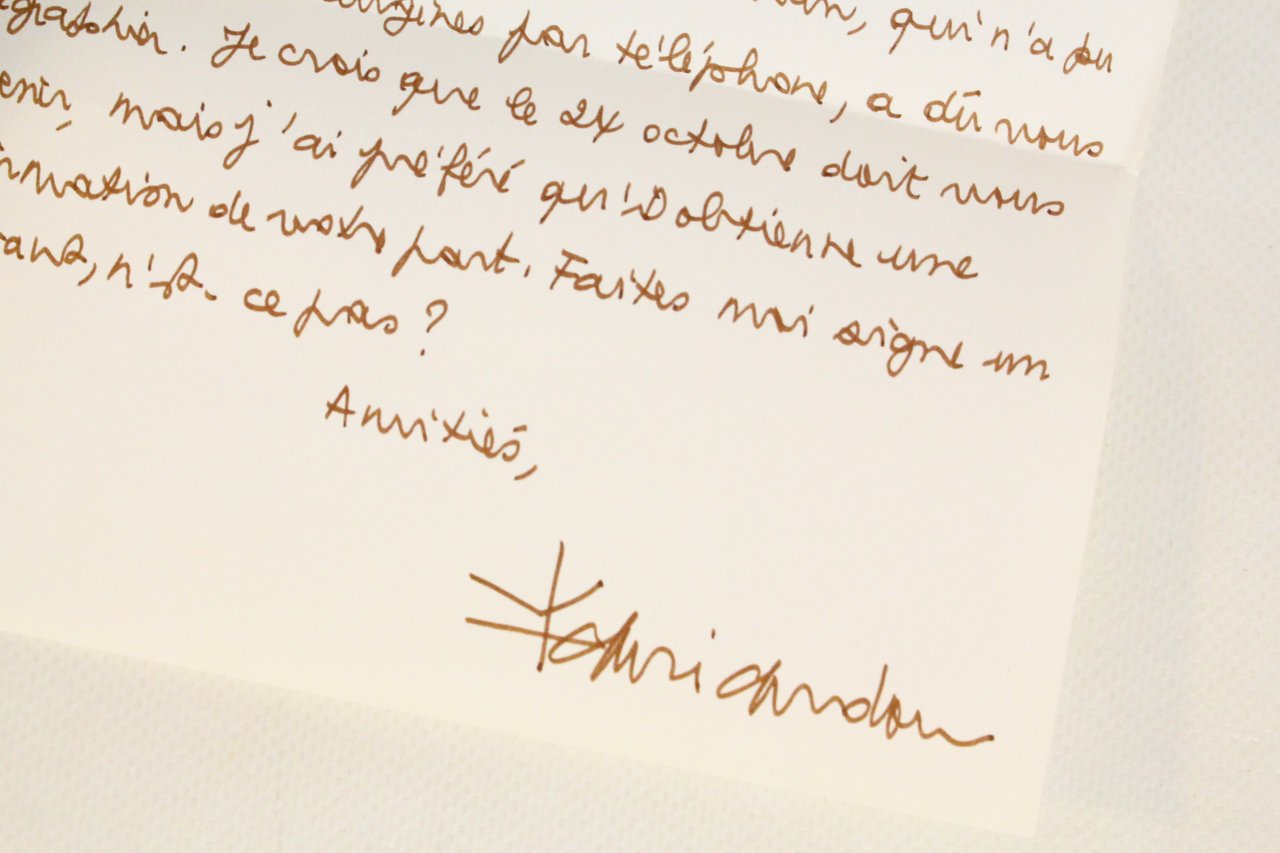 , qui n'a pu
par téléphone, a dû vous
graphier. Je crois que le 24 octobre doit vous
enir, mais j'ai préféré qu'il obtienne une
rmation de votre part. Faites moi signe un
, n'est-ce pas ?
Amitiés,